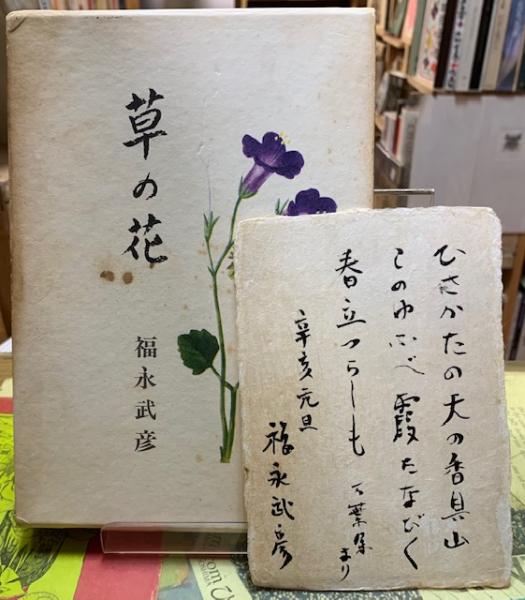 草の花
福永武彦
ひさかたの天の香具山
このゆふべ霞たなびく
春立つらしも
万葉集より
辛亥元旦
福永武彦